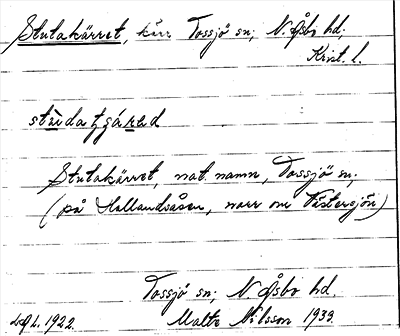 Stutakärret, kärr Tossjö sn; N. Åsbo hd;
Krist. l.
Stutakärret, nat. namn, Tossjö sn;
(på Hallandsåsen, norr om Västersjön)
Tossjö sn; N. Åsbo hd.
1922. Malte Nilsson 1939.